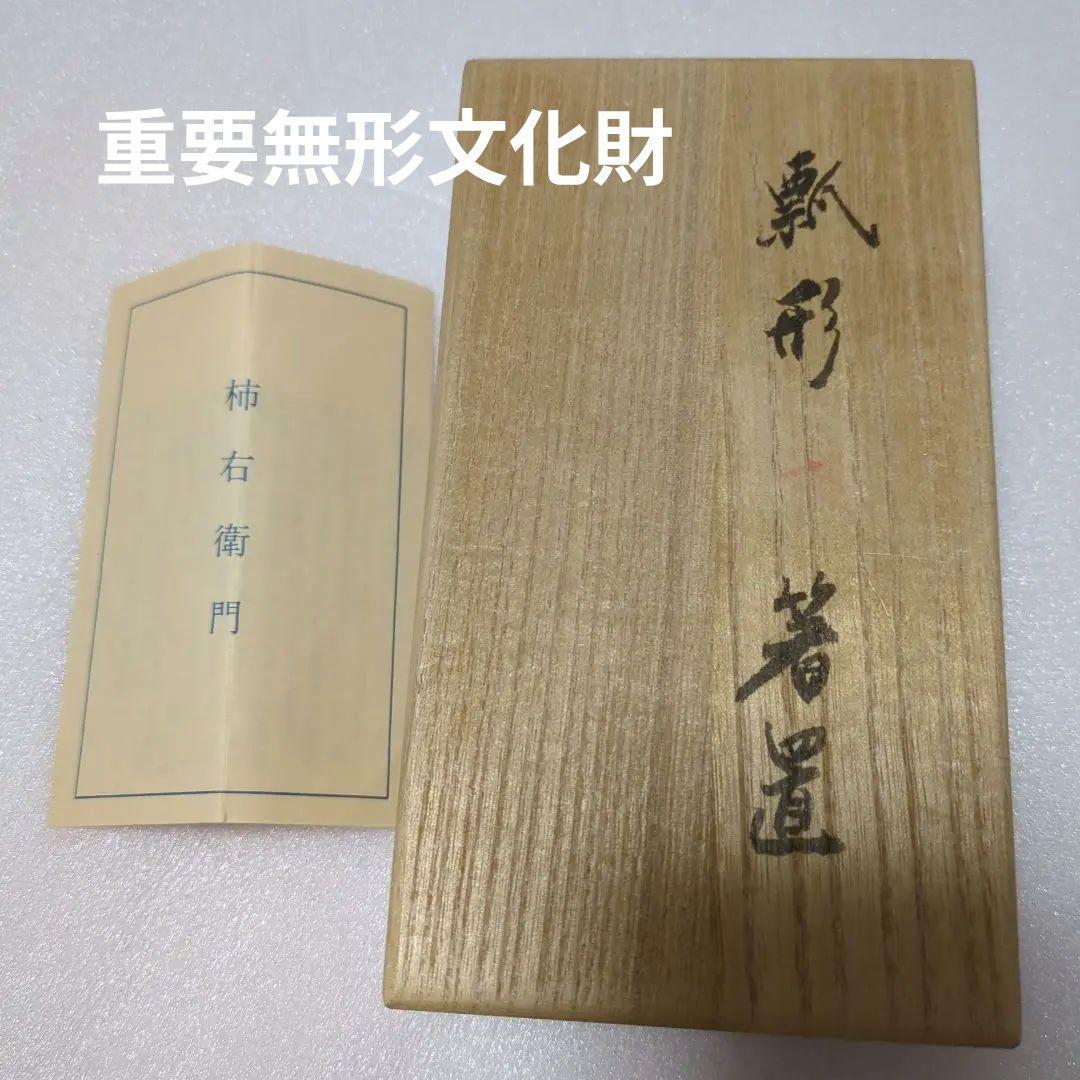 重要無形文化財
瓢形
箸置
柿右衛門